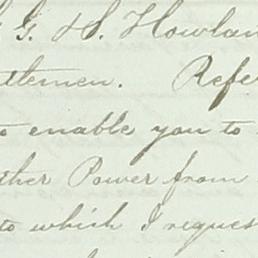 G. & S. Howlan
ttlemen. Refe
to enable you to
ther Power from
to which I reques